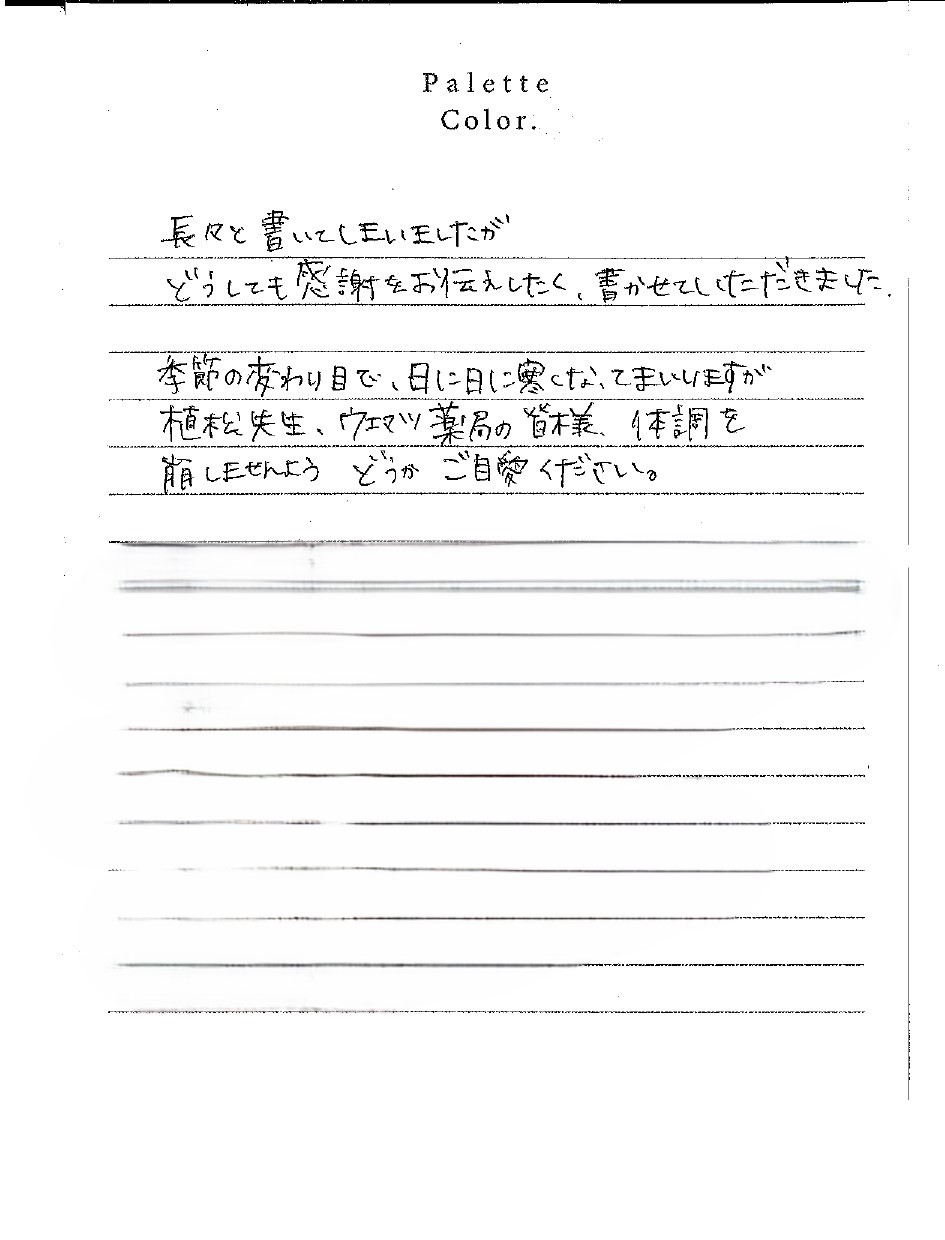 Palette
Color.
長々と書いてしまいましたが
どうしても感謝をお伝えしたく、書かせていただきました.
季節の変わり目で、日に日に寒くなってまいりますが
植松先生、ウエマツ薬局の皆様、体調を
崩しませんよう どうか ご自愛ください。